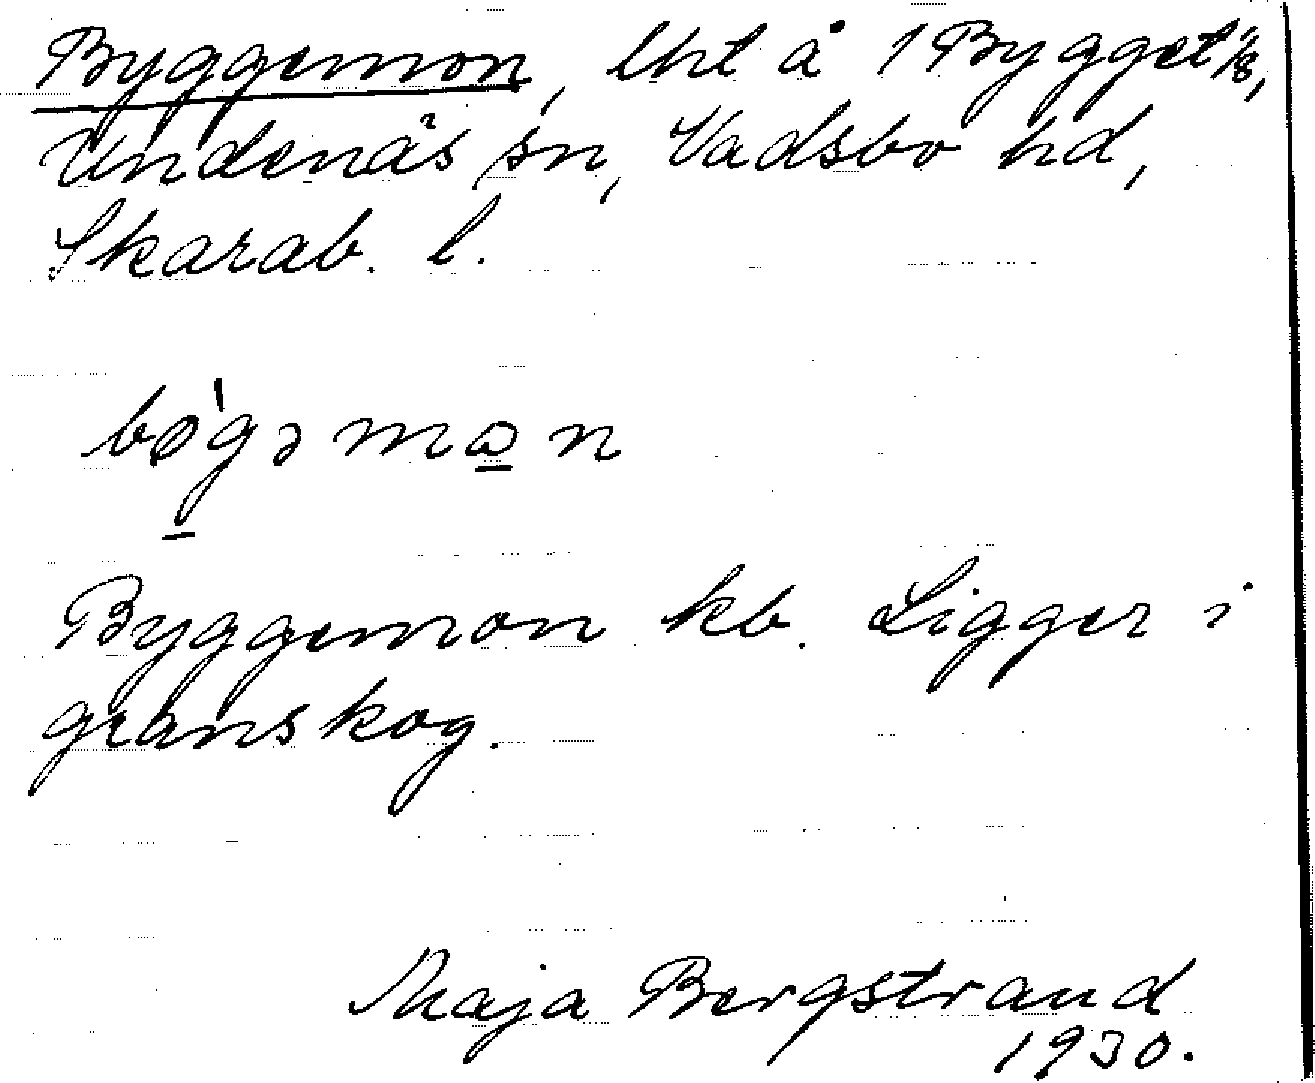 Byggemon, lht å 1 Bygget 1/8,
Undenäs sn, Vadsbo hd,
Skarab. l.
bø̠̀gəmo̠n
Byggemon kb. Ligger i
granskog.
Maja Bergstrand
1930.